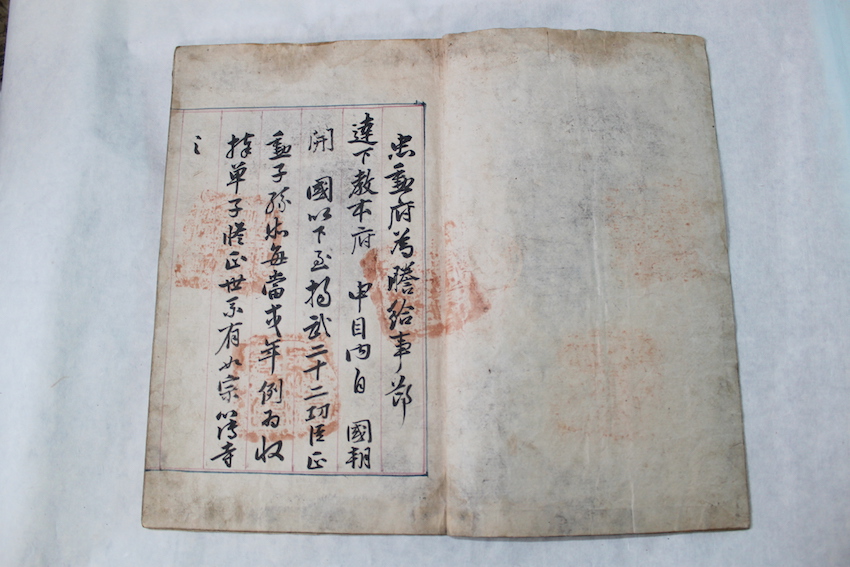 忠勳府為謄給事節
達下教本府 申目內自 國朝
開 國以下至揚武二十二功臣正
勳子孫每當式年例為收
捧單子正世系有如宗簿寺
之